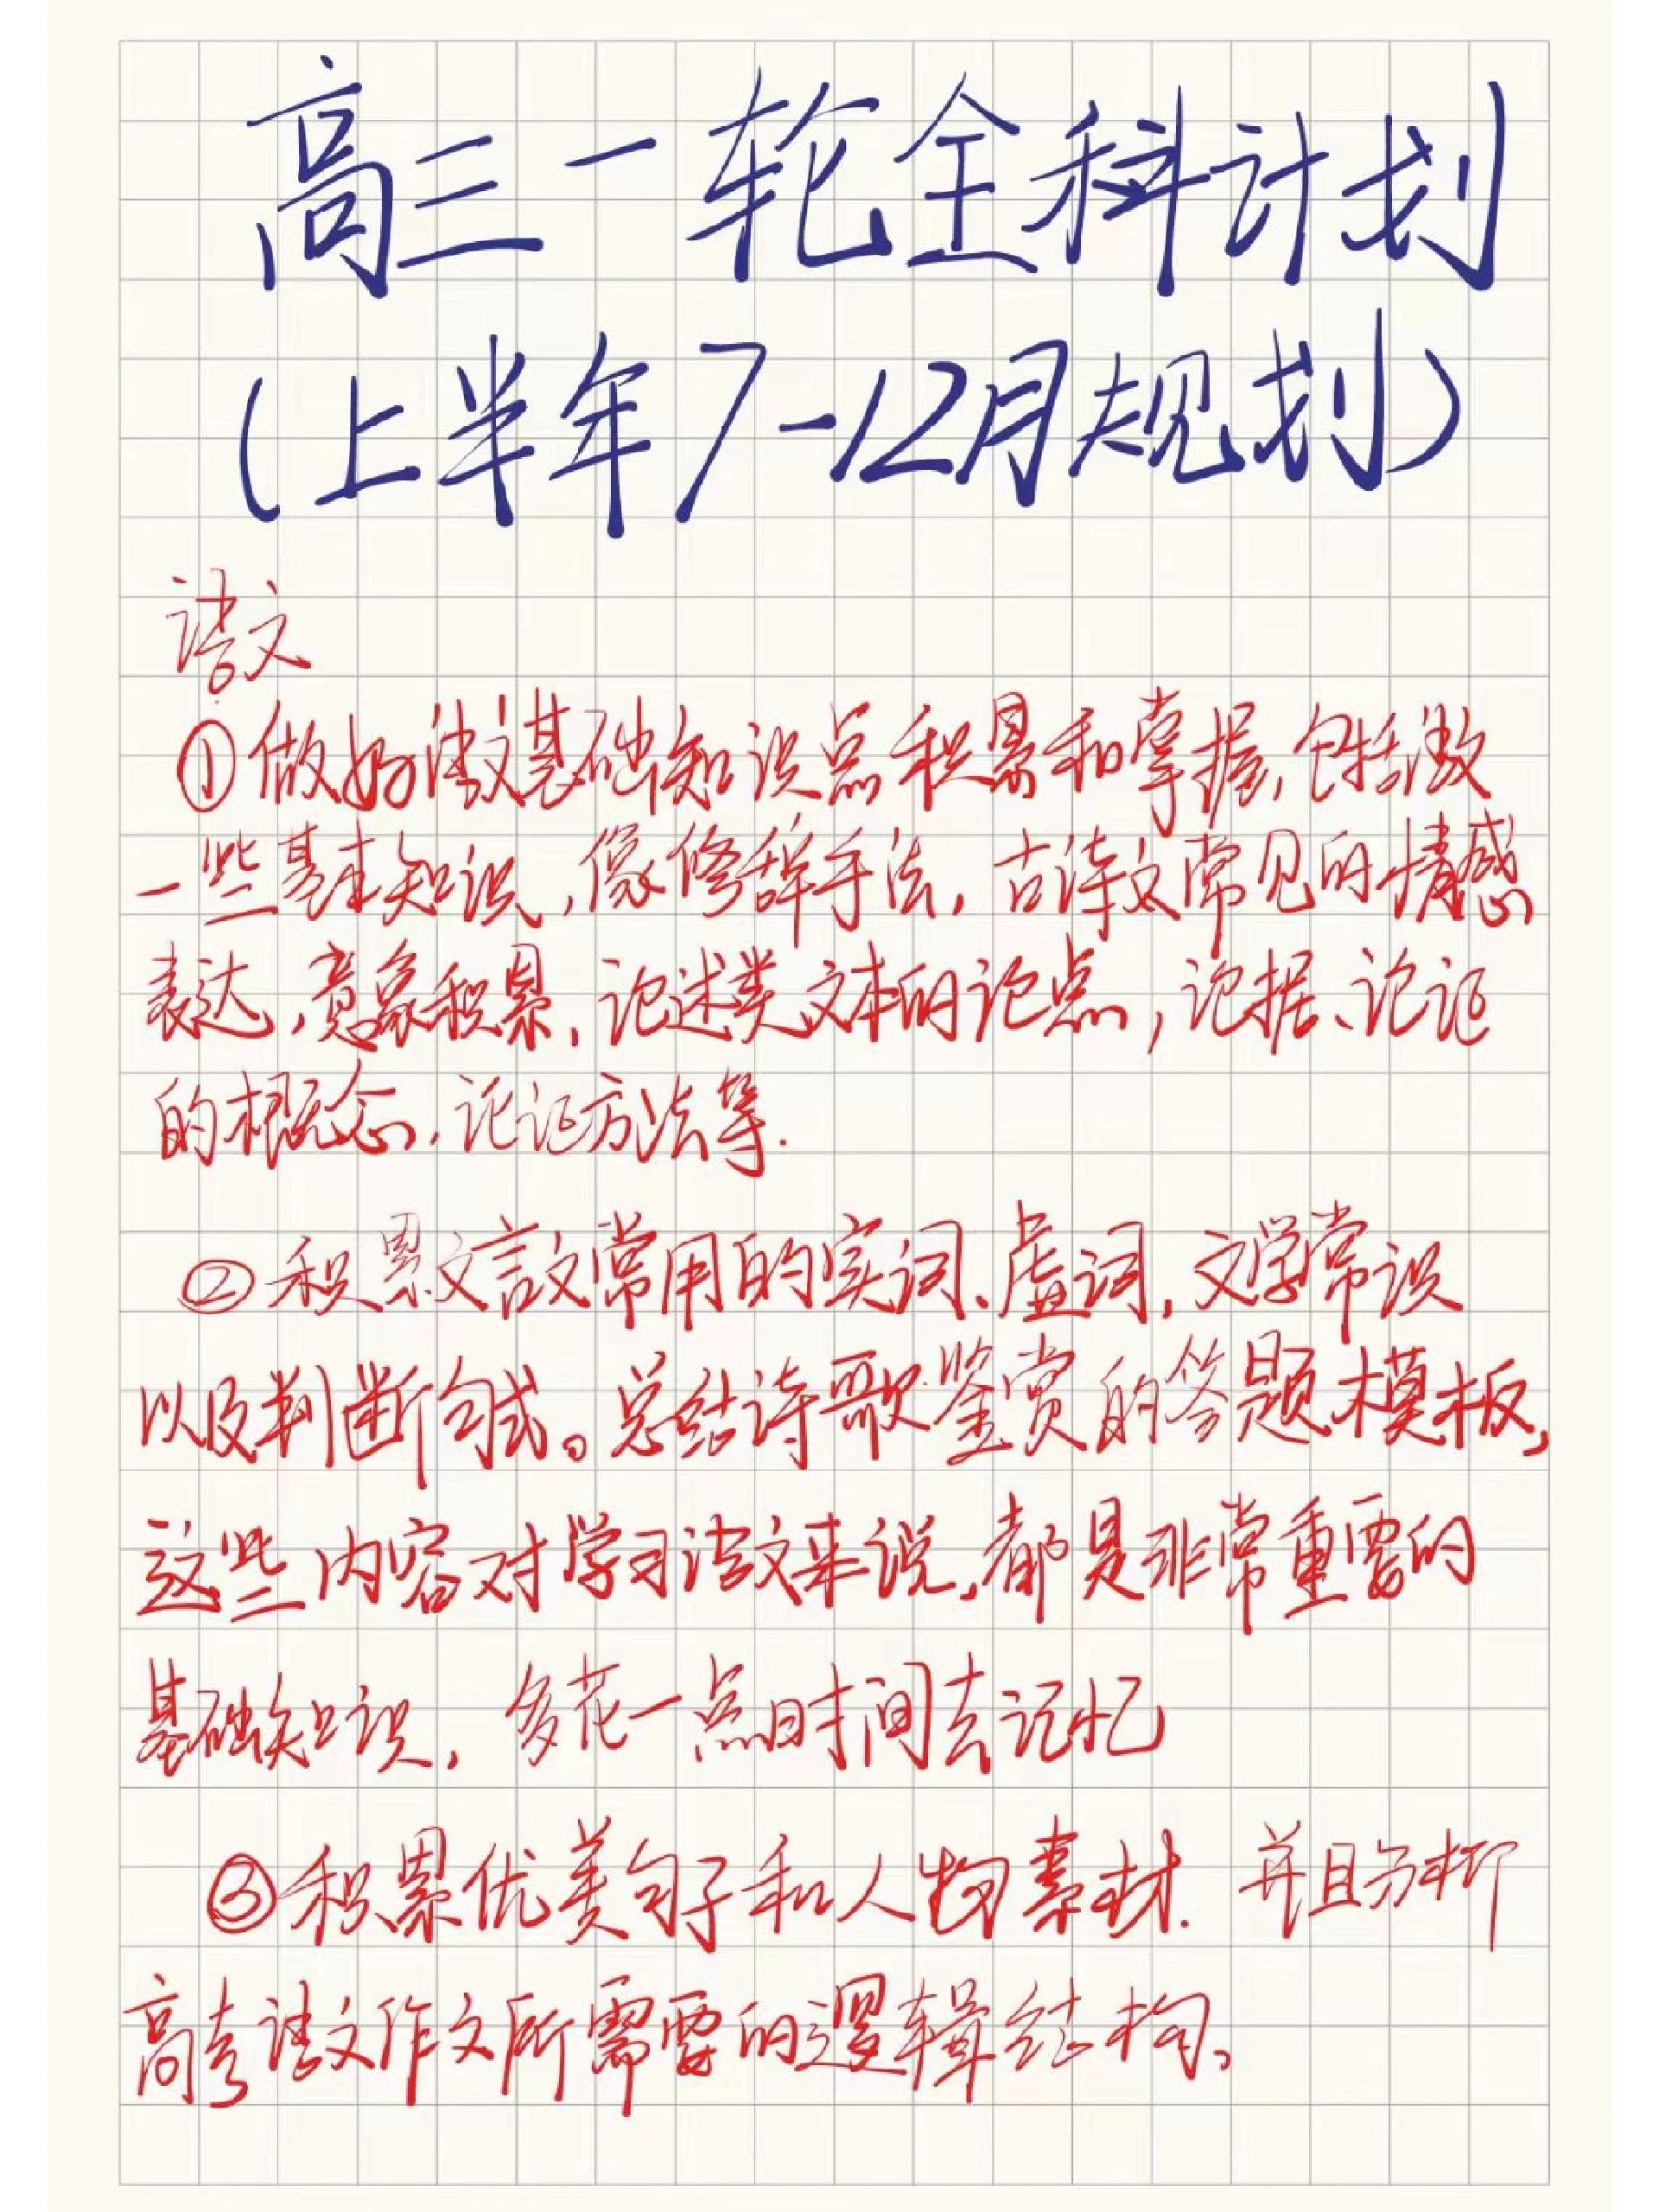 高三一轮全科计划
(上半年7-12月规划)
语文
①做好语文基础知识点积累和掌握,包括做
一些基本知识,像修辞手法,古诗文常见的情感
表达,意象积累,论述类文本的论点,论据、论证
的概念,论证方法等.
②积累文言文常用的实词、虚词,文学常识
以及判断句式。总结诗歌鉴赏的答题模板,
这些内容对学习语文来说,都是非常重要的
基础知识,多花一点时间去记忆
③积累优美句子和人物素材.并且分析
高考语文作文所需要的逻辑结构、